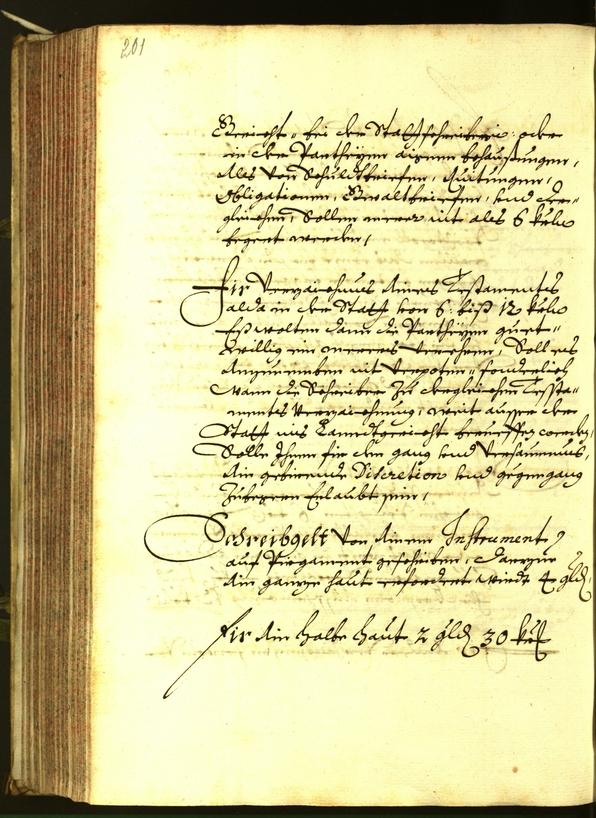 201
Bericht, bei der Stattschreiberei: oder
in der Partheyen aignen behausungen,
Als von Schuldtbriefen, Quitungen,
Obligationen, Gwaltbriefen, und der=
gleichen, Sollen merer nit als 6 kr
begert werden,
Fir Verzaichnus aines Testamentes
alda in der Statt von 6. biß 12 kr
Eß wolten dann die Partheyen guet=
willig ein merers verehren, Soll es
Anzunemben nit verpoten, sonderlich
Wann die Schreiber zu dergleichen Testa=
ments Verzaichnung, weit ausser der
Statt ins Landtgericht
Solle Ihnen fir den gang und Versaumnus,
Ain gebirende Discretion und
Erlaubt sein,
Schreibgelt Von Ainem Instrument
auf Pirgament geschriben, darzue
Ain ganze haut erfordert wirdt 4 gld,
Fir Ain halbe haut 2 gld 30 kr